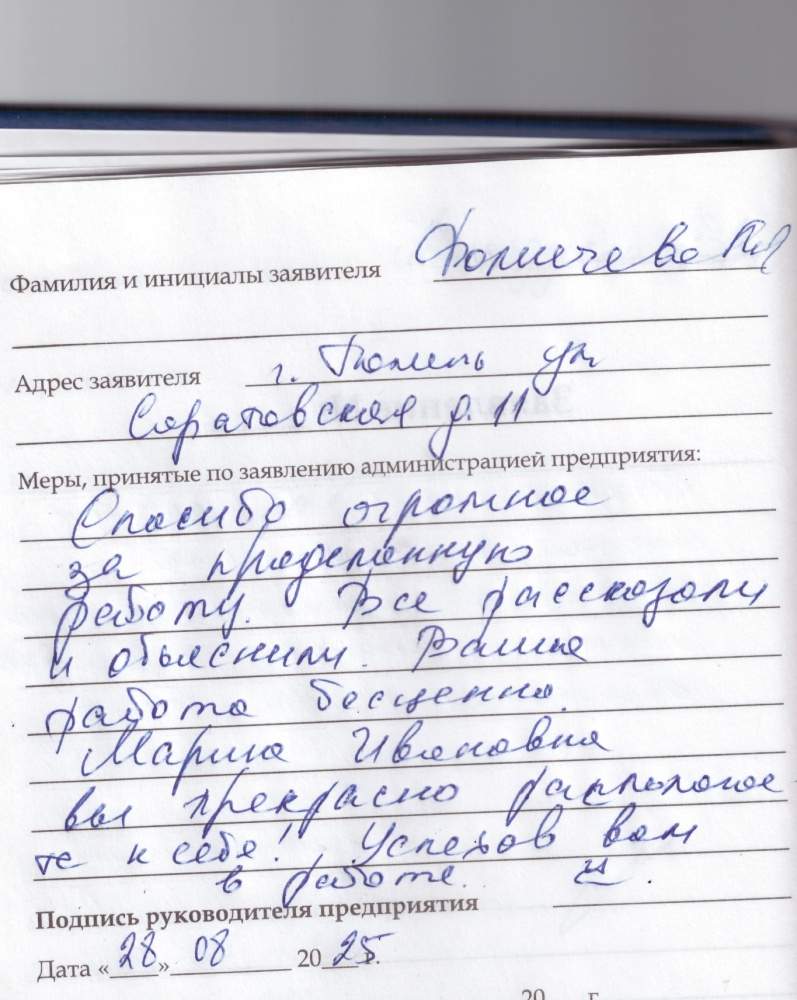 Фамилия и инициалы заявителя Фомичева
Адрес заявителя г. Тюмень ул
Саратовская д. 11
Меры, принятые по заявлению администрацией предприятия:
Спасибо огромное
за проделанную
работу. Все рассказали
и обьяснили. Ваша
работа бесценна.
Марина Ивановна
вы прекрасно располагае
те к себе! Успехов вам
в работе.
Подпись руководителя предприятия
Дата «28» 08 2025 г.
20 г